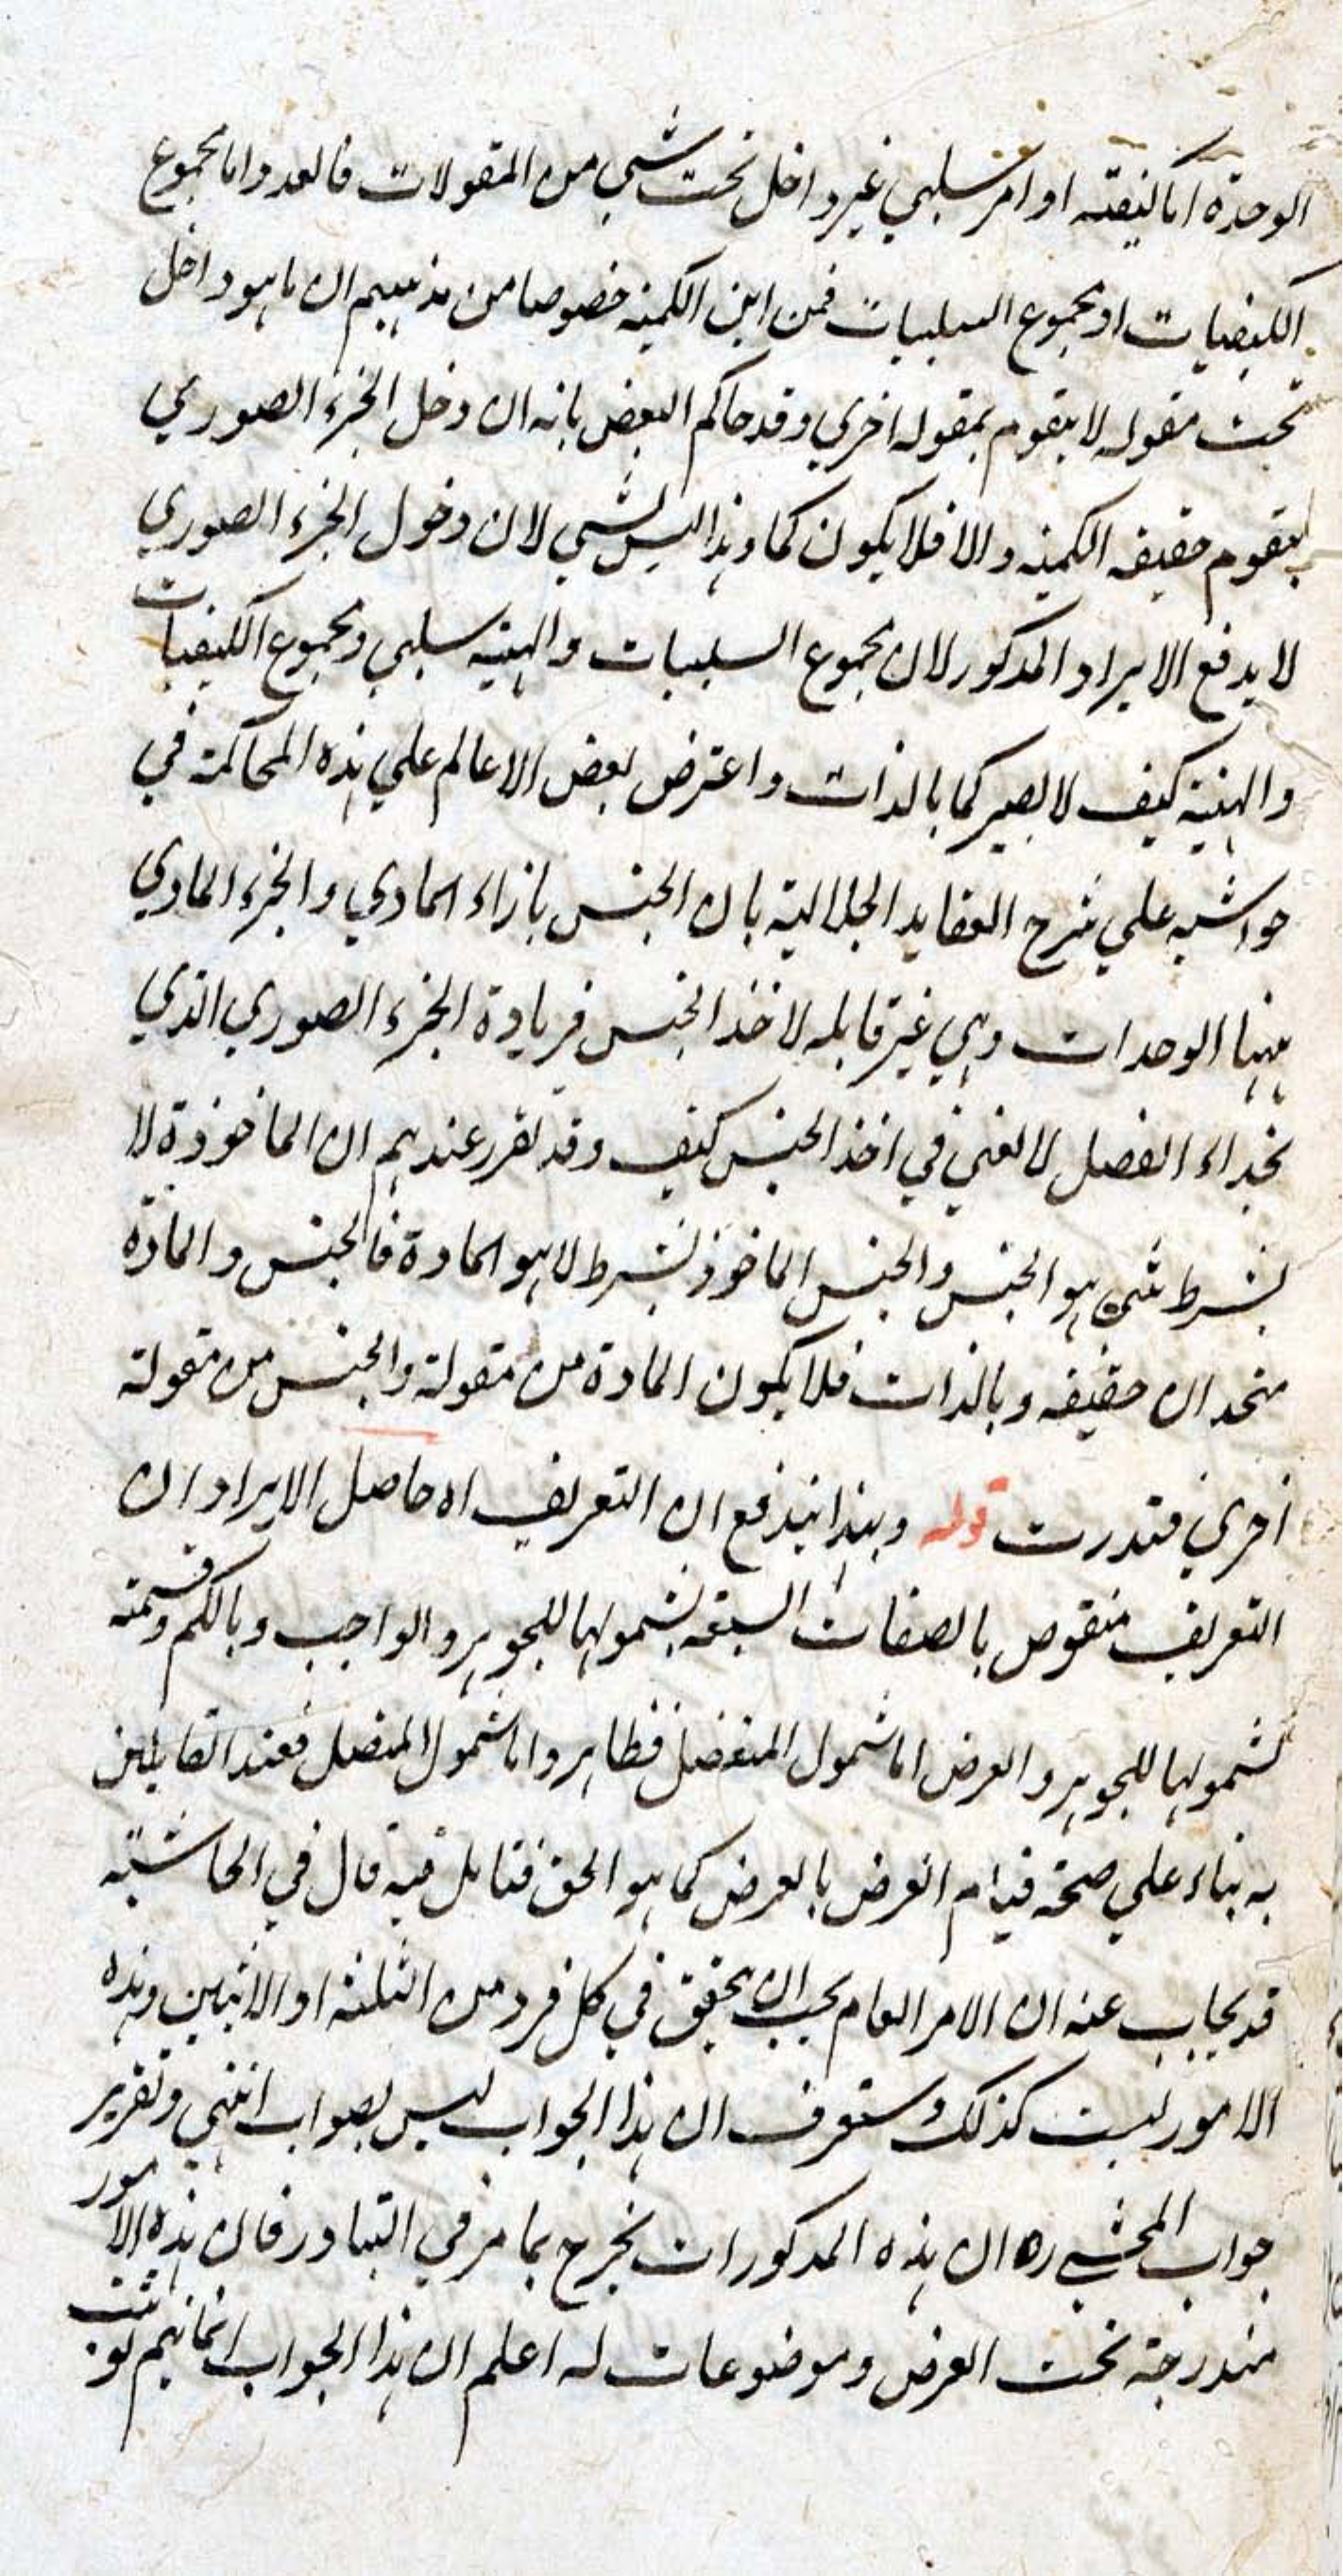 الوحدة اما كيفية او امر سلبي غير داخل تحت شيي من المقولات فالعدد اما مجموع
الكيفيات او مجموع السلبيات فمن اين الكمية خصوصا من مذهبهم ان ما هو داخل
تحت مقوله لا يتقوم بمقوله اخري وقد حاكم البعض بانه ان دخل الجزء الصوري
يتقوم حقيقه الكمية والا فلا يكون كما وهذا ليس بشيي لان دخول الجزء الصوري
لا يدفع الايراد المذكور لان مجموع السلبيات والهيئة سلبي ومجموع الكيفيات
والهيئة كيف لا يصير كما بالذات واعترض بعض الاعالم علي هذه المحاكمة في
حواشيه علي شرح العقايد الجلالية بان الجنس بازاء المادي والجزء المادي
ههنا الوحدات وهي غير قابله لاخذ الجنس فزيادة الجزء الصوري الذي
بحذاء الفصل لا تغني في اخذ الجنس كيف وقد تقرر عندهم ان الماخوذة لا
بشرط شيئ هو الجنس والجنس الماخوذ بشرط لا هو المادة فالجنس والمادة
متحدان حقيقه وبالذات فلا يكون المادة من مقولة والجنس من مقولة
اخري فتدرت قوله وبهذا يندفع ان التعريف اه حاصل الايراد ان
التعريف منقوص بالصفات السبعة بشمولها للجوهر والواجب وبالكم وقسمته
لشمولها للجوهر والعرض اما شمول المنفصل فظاهر واما شمول المتصل فعند القايلين
به بناء علي صحة قيام العرض بالعرض كما هو الحق فتامل فيه قال في الحاشية
قد يجاب عنه ان الامر العام يجب ان يتحقق في كل فرد من الثلثة او الاثنين وهذه
الامور ليست كذلك وستعرف ان هذا الجواب ليس بصواب انتهي وتقرير
جواب المحشي ره ان هذه المذكورات تخرج بما مر في التبادر فان هذه الامور
مندرجة تحت العرض وموضوعات له اعلم ان هذا الجواب انما يتم لو ثبت